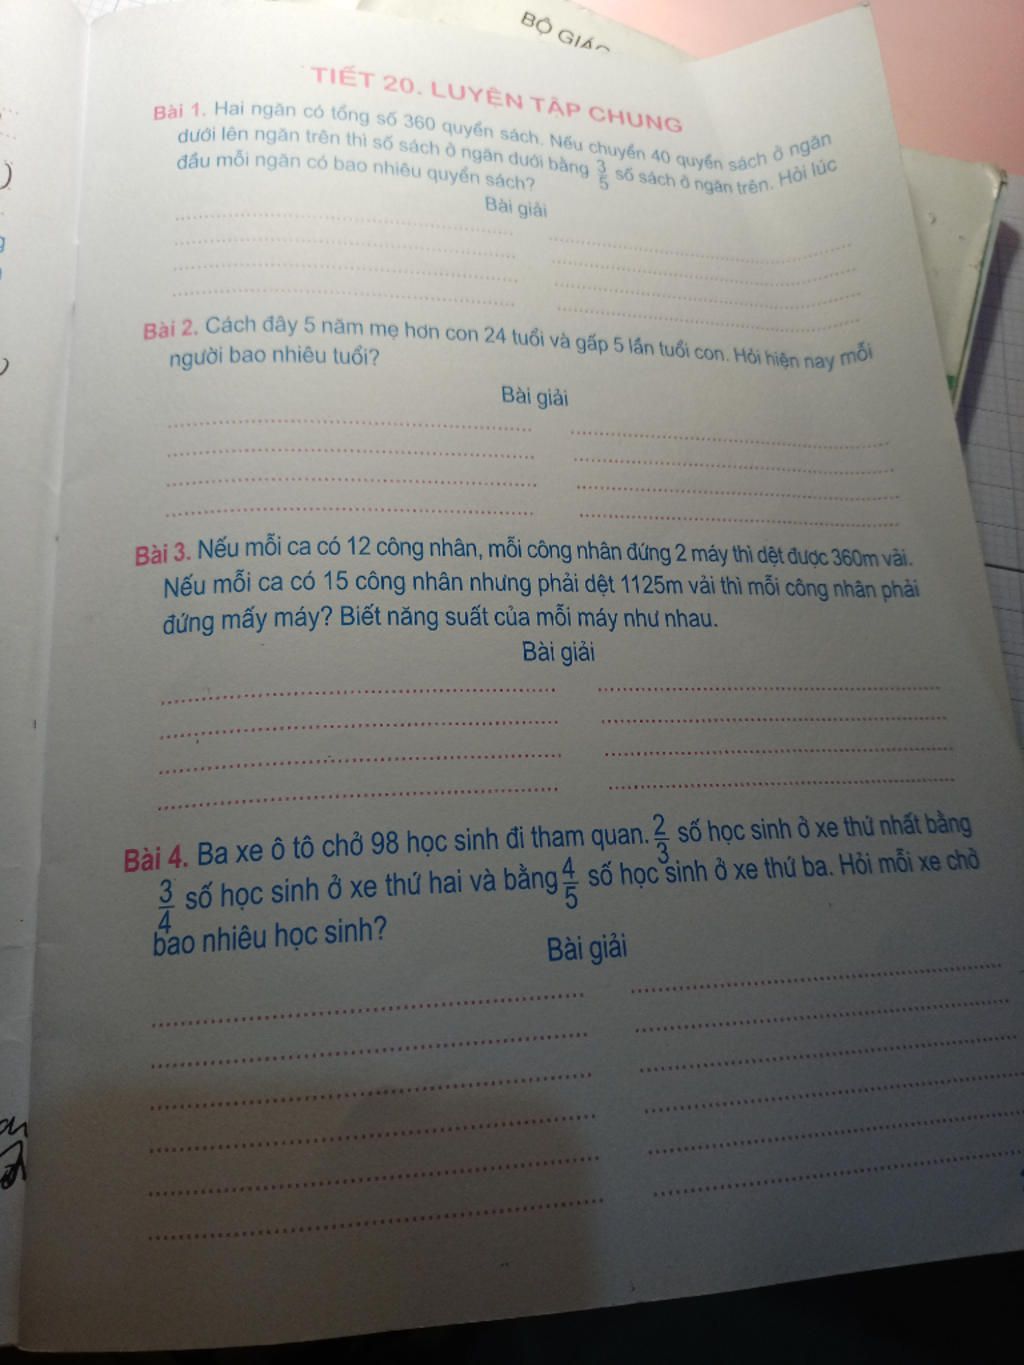 BỘ GIÁO
TIẾT 20. LUYỆN TẬP CHUNG
Bài 1. Hai ngăn có tổng số 360 quyển sách. Nếu chuyển 40 quyển sách ở ngăn
dưới lên ngăn trên thì số sách ở ngăn dưới bằng 3/5 số sách ở ngăn trên. Hỏi lúc
đầu mỗi ngăn có bao nhiêu quyển sách?
Bài giải
Bài 2. Cách đây 5 năm mẹ hơn con 24 tuổi và gấp 5 lần tuổi con. Hỏi hiện nay mỗi
người bao nhiêu tuổi?
Bài giải
Bài 3. Nếu mỗi ca có 12 công nhân, mỗi công nhân đứng 2 máy thì dệt được 360m vải.
Nếu mỗi ca có 15 công nhân nhưng phải dệt 1125m vải thì mỗi công nhân phải
đứng mấy máy? Biết năng suất của mỗi máy như nhau.
Bài giải
Bài 4. Ba xe ô tô chở 98 học sinh đi tham quan. 2/3 số học sinh ở xe thứ nhất bằng
3/4 số học sinh ở xe thứ hai và bằng 4/5 số học sinh ở xe thứ ba. Hỏi mỗi xe chở
bao nhiêu học sinh?
Bài giải